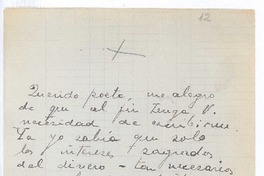 12
Querido poeta, me alegro
de que al fin tenga V.
necesidad de escribirme.
Ya yo sabía que solo
los intereses sagrados
del dinero - tan necesarios